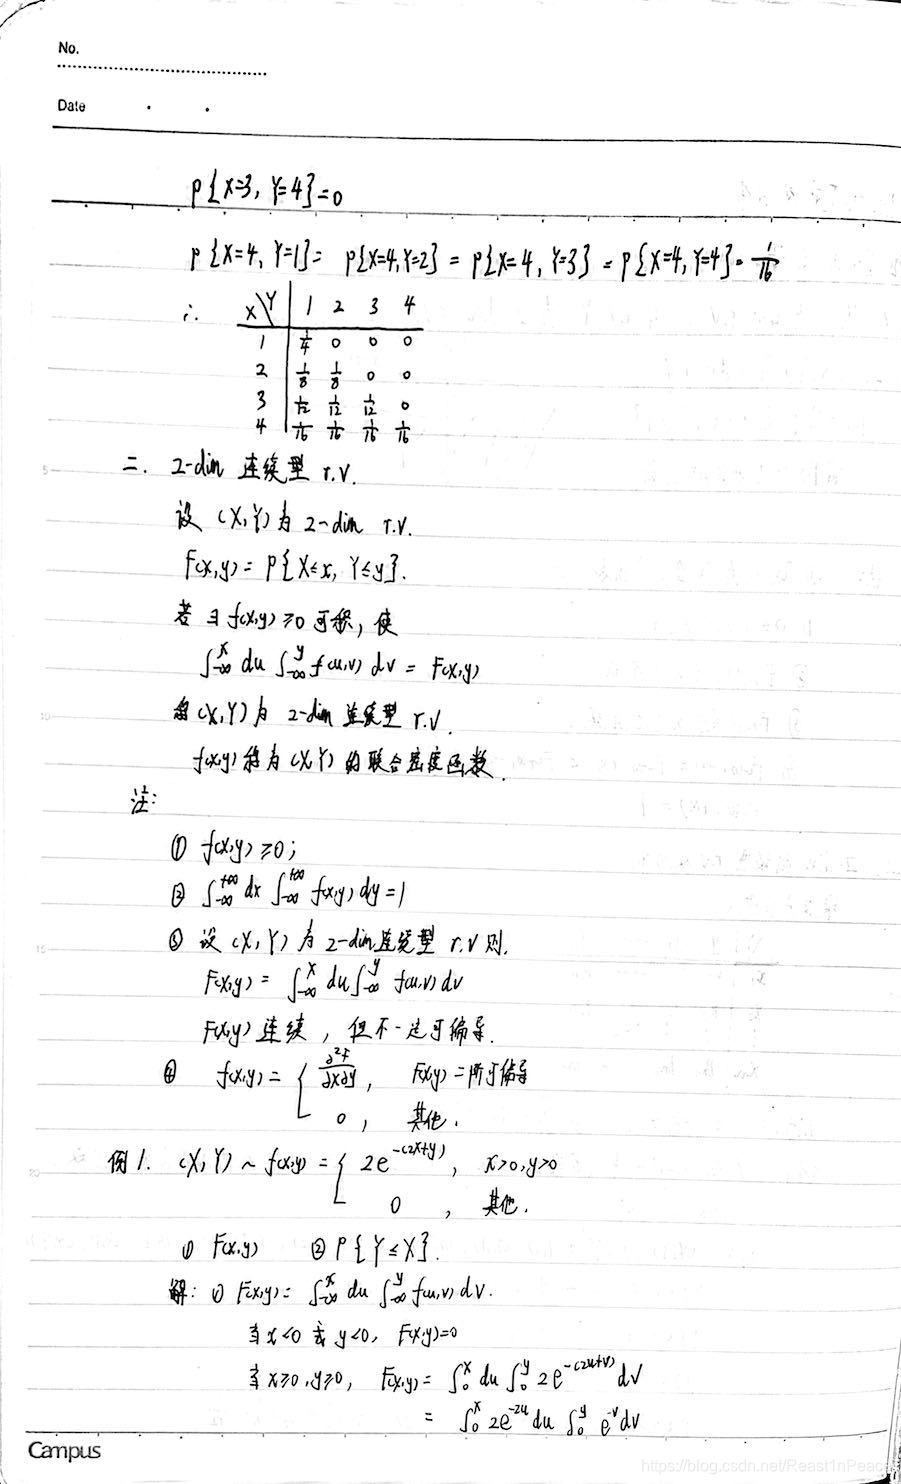 No.
Date
P{X=3, Y=4}=0
P{X=4, Y=1}= P{X=4,Y=2} = P{X=4, Y=3} = P{X=4, Y=4} = 1/16
∴ X\Y 1 2 3 4
1 1/4 0 0 0
2 1/8 1/8 0 0
3 1/12 1/12 1/12 0
4 1/16 1/16 1/16 1/16
二. 2-dim 连续型 r.v.
设 (X,Y)为 2-dim r.v.
F(x,y) = P{X≤x, Y≤y}.
若 ∃ f(x,y) ≥0 可积, 使
∫_{-∞}^{x} du ∫_{-∞}^{y} f(u,v) dv = F(x,y)
称(X,Y)为 2-dim 连续型 r.v.
f(x,y)称为(X,Y)的联合密度函数.
注:
① f(x,y) ≥0;
② ∫_{-∞}^{+∞} dx ∫_{-∞}^{+∞} f(x,y) dy =1
③ 设 (X,Y)为 2-dim连续型 r.v 则.
F(x,y) = ∫_{-∞}^{x} du ∫_{-∞}^{y} f(u,v) dv
F(x,y) 连续, 但不一定可偏导.
④ f(x,y) = { ∂²F/∂x∂y, F(x,y)二阶可偏导
0, 其他.
例1. (X,Y) ~ f(x,y) = { 2e^{-(2x+y)}, x>0,y>0
0, 其他.
① F(x,y) ② P{Y≤X}.
解: ① F(x,y)= ∫_{-∞}^{x} du ∫_{-∞}^{y} f(u,v) dv.
当x<0 或 y<0, F(x,y)=0
当x≥0,y≥0, F(x,y) = ∫_0^x du ∫_0^y 2e^{-(2u+v)} dv
= ∫_0^x 2e^{-2u} du ∫_0^y e^{-v} dv
5
10
15
Campus
https://blog.csdn.net/Reast1nPeace